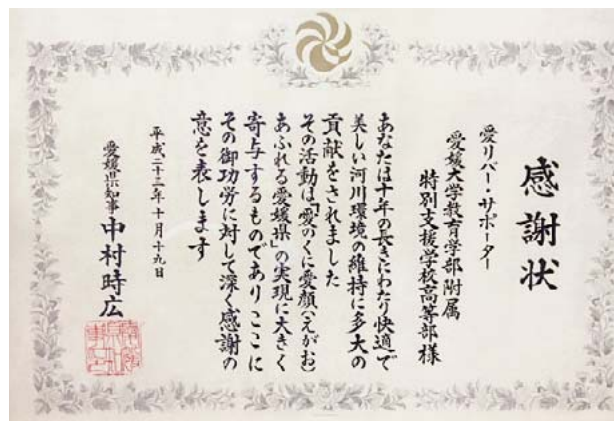 感謝状
愛リバー・サポーター
愛媛大学教育学部附属
特別支援学校高等部様
あなたは十年の長きにわたり快適で
美しい河川環境の維持に多大の
貢献をされました
その活動は「愛のくに愛顔(えがお)
あふれる愛媛県」の実現に大きく
寄与するものでありここに
その御功労に対して深く感謝の
意を表します
平成二十三年十月十九日
愛媛県知事 中村時広